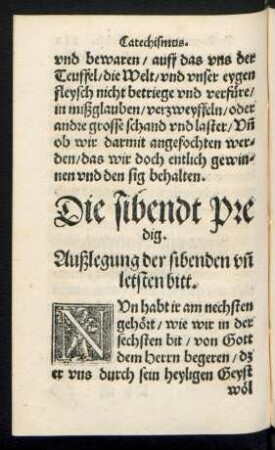 Catechismus.
vnd bewaren / auff das vns der
Teuffel / die Welt / vnd vnser eygen
fleysch nicht betriege vnd verfüre /
in mißglauben / verzweyffeln / oder
andre grosse schand vnd laster / Vñ
ob wir darmit angefochten wer-
den / das wir doch entlich gewin-
nen vnd den sig behalten.
Die sibendt Pre
dig.
Außlegung der sibenden vñ
letsten bitt.
NVn habt ir am nechsten
gehört / wie wir in der
sechsten bit / von Gott
dem Herrn begeren / dz
er vns durch sein heyligen Geyst
wöl